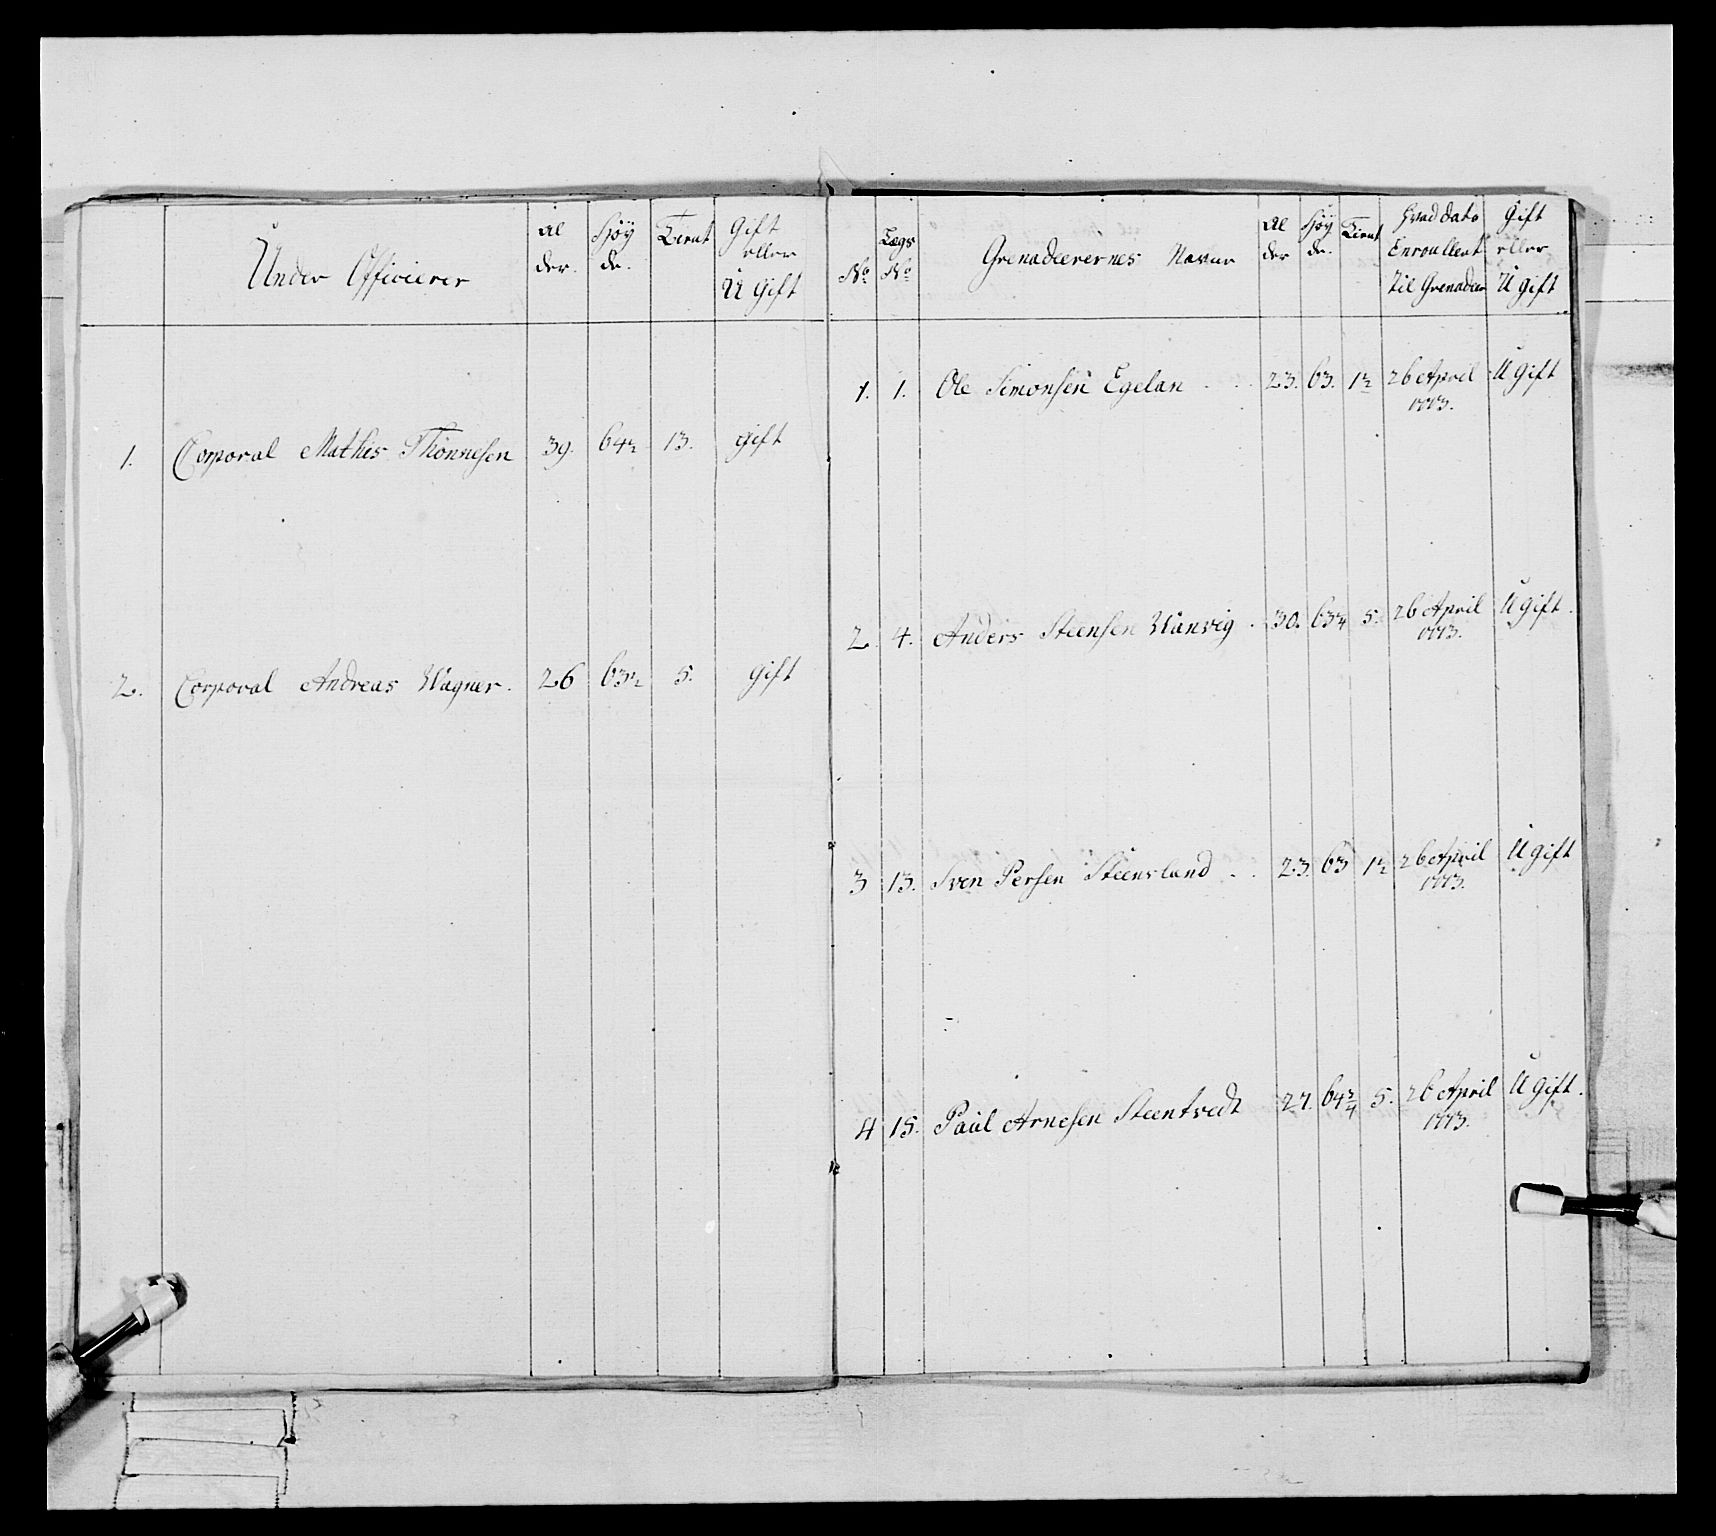 Under Officierer
Al
der.
Høy
de.
Tient
Gift
eller
U gift
1. Corporal Mathis Thonnesen 39. 64½ 13. gift
2. Corporal Andreas Wagner. 26 63½ 5. gift
No
Lægs
No
Grenadeerernes Navne
Al
der
Høy
de.
Tient
Hvad dato
Enroullert
til Grenadeer
Gift
eller
U gift
1. 1. Ole Simonsen Egelan 23. 63. 1½ 26 April U gift
1773.
2. 4. Anders Steensen 30. 63¼ 5. 26 April U gift.
1773.
3 13. Sven Persen Steensland 23. 63 1½ 26 April U gift
1773.
4 15. Paul Arnesen Steentvedt 27. 64¾ 5. 26 April U gift.
1773.